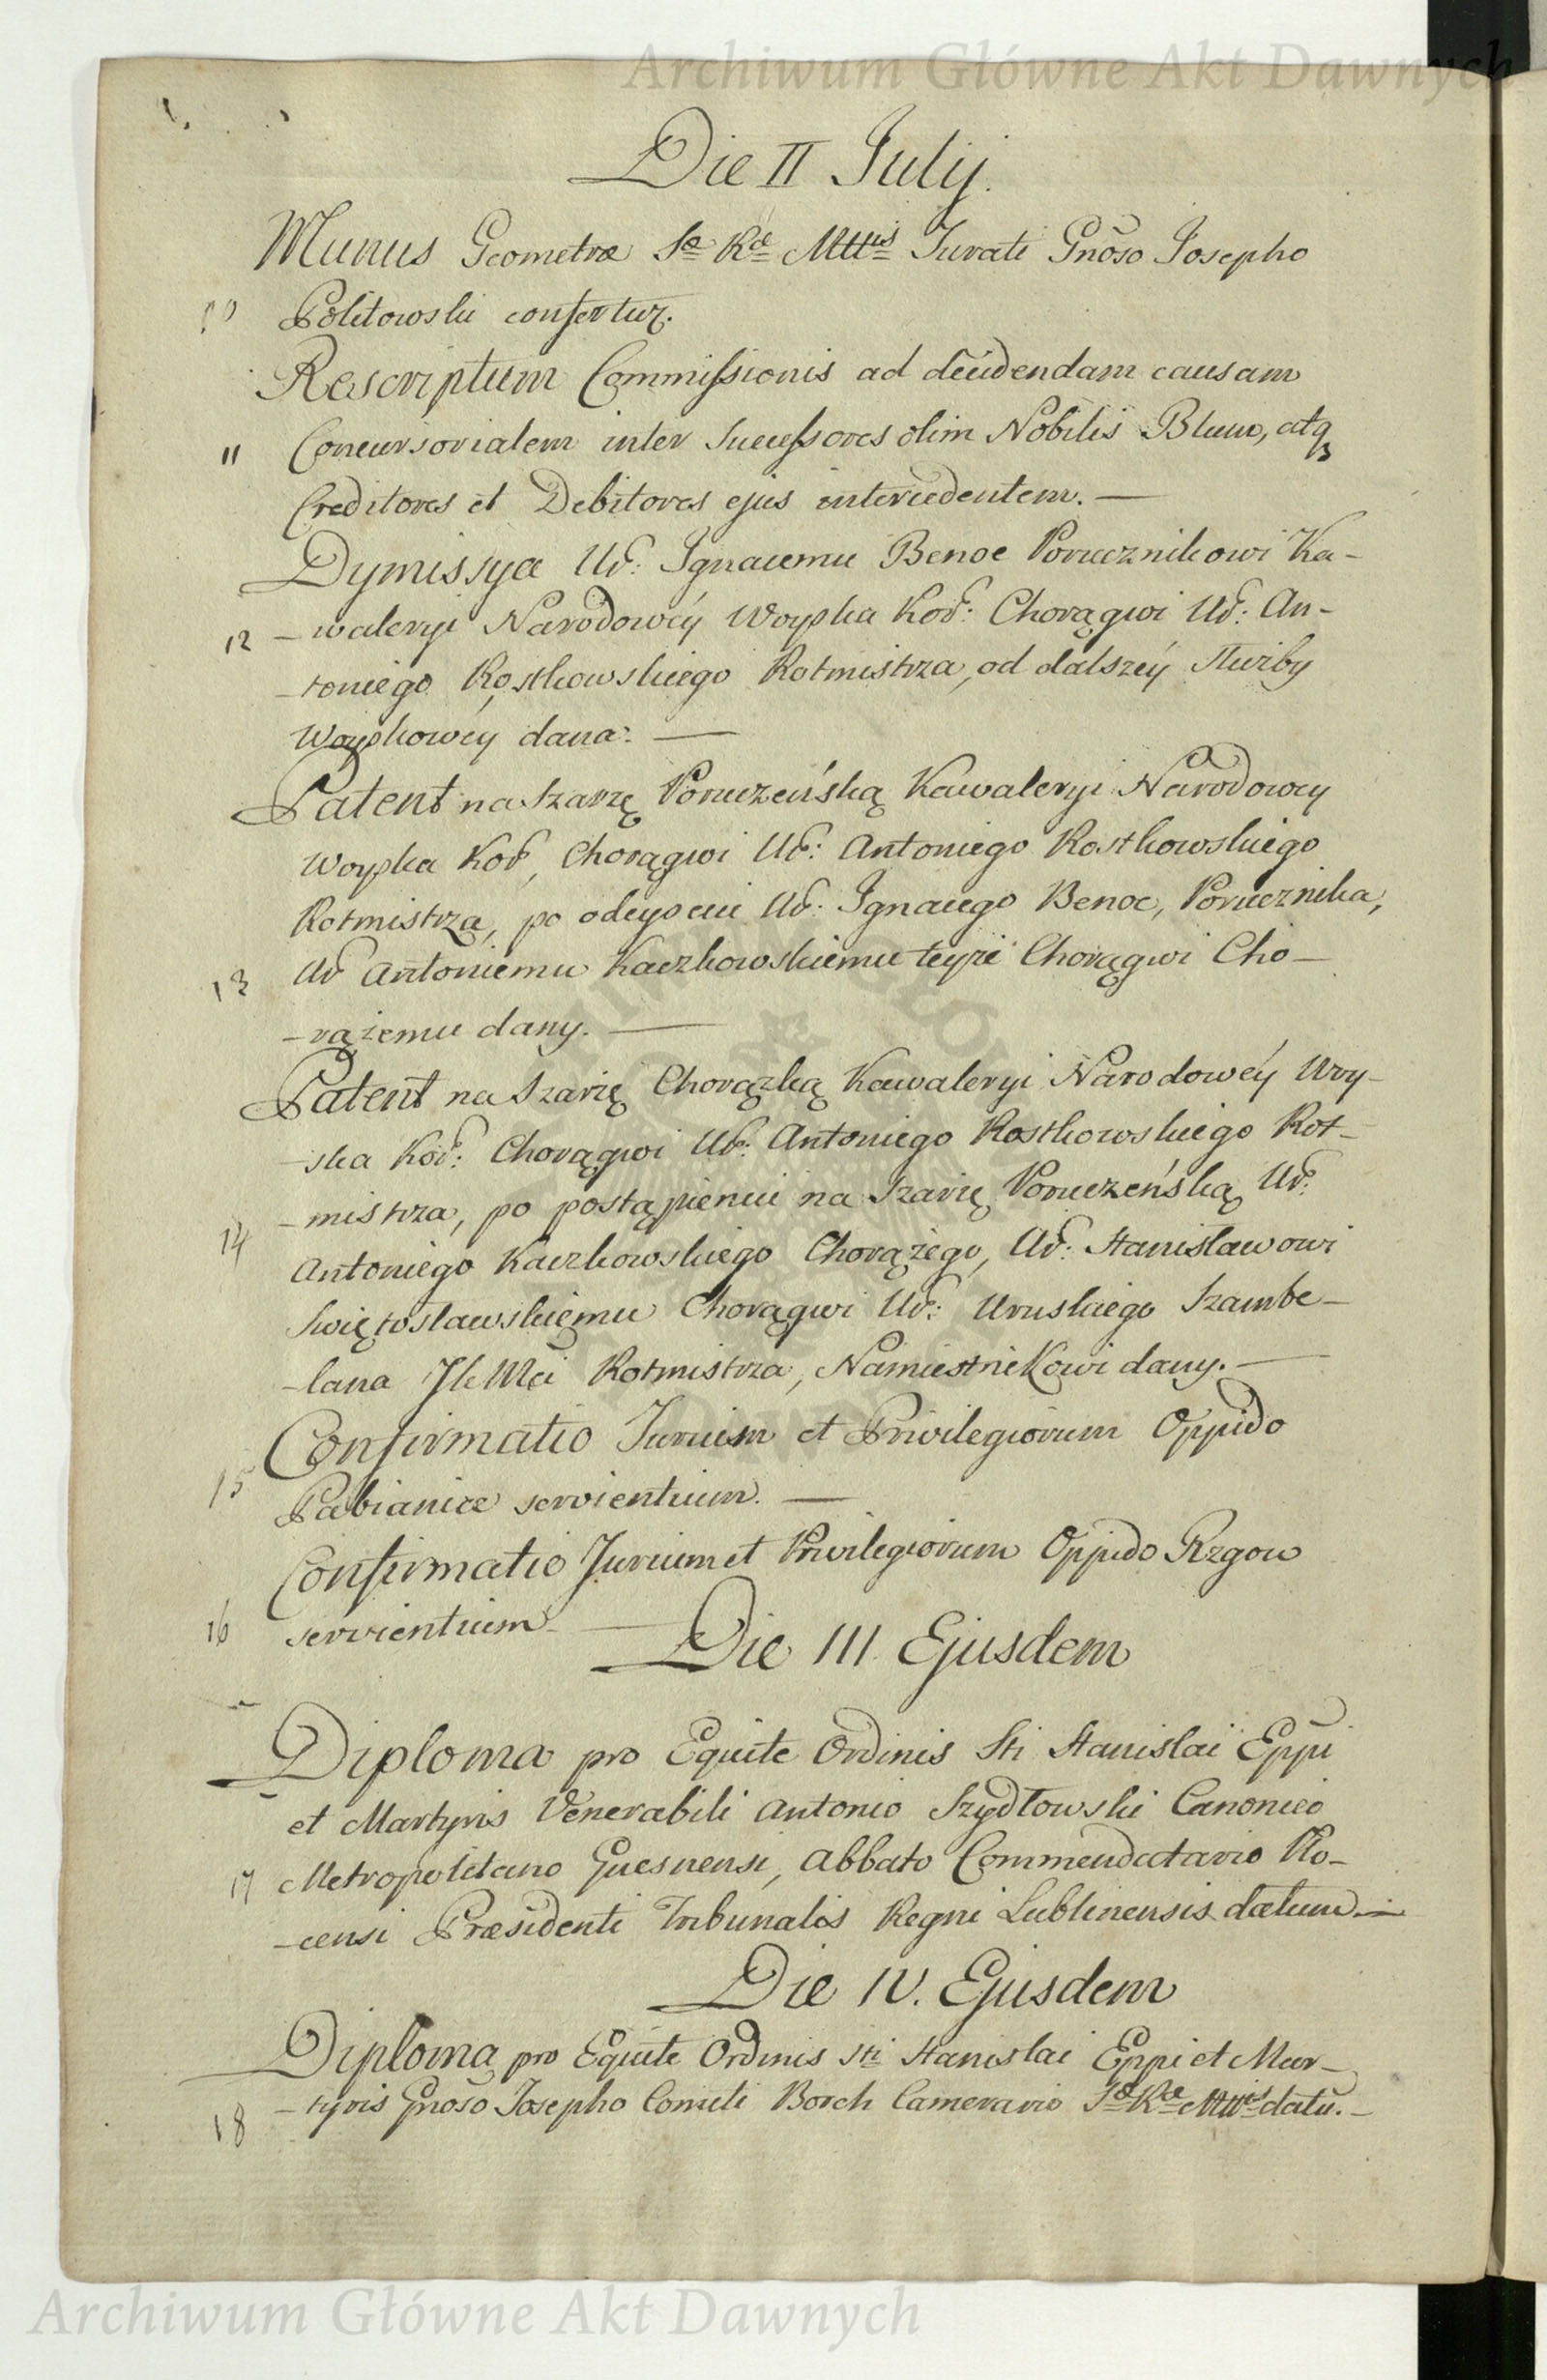 Archiwum Główne Akt Dawnych
Die II Julij.
Munus Geometræ Sæ Ræ Mttis Jurati Gnõso Josepho
10 Politowski confertur.
Rescriptum Commissionis ad decidendam causam
11 Concursorialem inter Successores olim Nobilis Blum, atq
Creditores et Debitores ejus intercedentem. —
Dymissya Ur: Ignacemu Benoe Porucznikowi Ka-
12 -waleryi Narodowéy Woyska Kor: Chorągwi Ur: An-
-toniego Rostkowskiego Rotmistrza, od dalszéy służby
Woyskowéy dana. —
Patent na Szarżę Poruczeńską Kawaleryi Narodowey
Woyska Kor, Chorągwi Ur: Antoniego Rostkowskiego
Rotmistrza, po odeyściu Ur: Ignacego Benoe, Porucznika,
13 Ur Antoniemu Kaczkowskiemu teyże Chorągwi Cho-
-rążemu dany. —
Patent na Szarżę Chorązką Kawaleryi Narodowéy Woy-
-ska Kor: Chorągwi Ur: Antoniego Rostkowskiego Rot-
-mistrza, po postąpieniu na Szarżę Poruczeńską Ur:
14 Antoniego Kaczkowskiego Chorążego, Ur: Stanisławowi
Swiętosławskiemu Chorągwi Ur: Uruskiego Szambe-
-lana JKMci Rotmistrza, Namiestnikowi dany. —
Confirmatio Jurium et Privilegiorum Oppido
15 Pabianice servientium. —
Confirmatio Jurium et Privilegiorum Oppido Rzgow
16 servientium —
Die III. Ejusdem
Diploma pro Equite Ordinis Sti Stanislai Eppi
et Martyris Venerabili Antonio Szydłowski Canonico
17 Metropolitano Gnesnensi, Abbato Commendatario Plo-
-censi Præsidenti Tribunalis Regni Lublinensis datum. —
Die IV. Ejusdem
Diploma pro Equite Ordinis Sti Stanislai Eppi et Mar-
18 -tyris Gnõso Josepho Comiti Borch Camerario Sæ Ræ Mttis datũ. —
Archiwum Główne Akt Dawnych